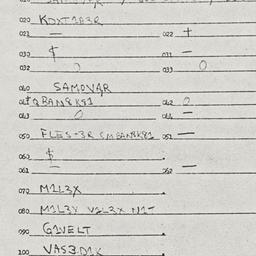 020 KOXT1B3R
021 — 022 +
030 $ 031 —
032 033 0
040 SAMOVAR
041 QBAN8K81 042 0
043 0 044 —
050 FLES-3R SMBAN8K81 051 —
060 $
061 — 062 —
070 M1L3X
080 M1L3X V1L3X N1-
090 G1VELT
100 VAS3D1K